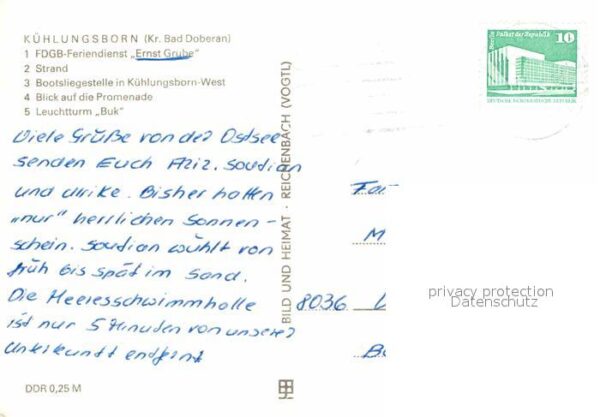 KÜHLUNGSBORN (Kr. Bad Doberan)
1 FDGB-Feriendienst „Ernst Grube"
2 Strand
3 Bootsliegestelle in Kühlungsborn-West
4 Blick auf die Promenade
5 Leuchtturm „Buk"
Viele Grüße von der Ostsee
senden Euch Aziz, Soudian
und Ulrike. Bisher hatten
„nur" herrlichen Sonnen-
schein. Soudian wühlt von
früh bis spät im Sand.
Die Meeresschwimmhalle
ist nur 5 Minuten von unserer
Unterkunft entfernt
DDR 0,25 M
BILD UND HEIMAT · REICHENBACH (VOGTL)
Berlin Palast der Republik
10
DEUTSCHE DEMOKRATISCHE REPUBLIK
Fa
M
8036
privacy protection
Datenschutz